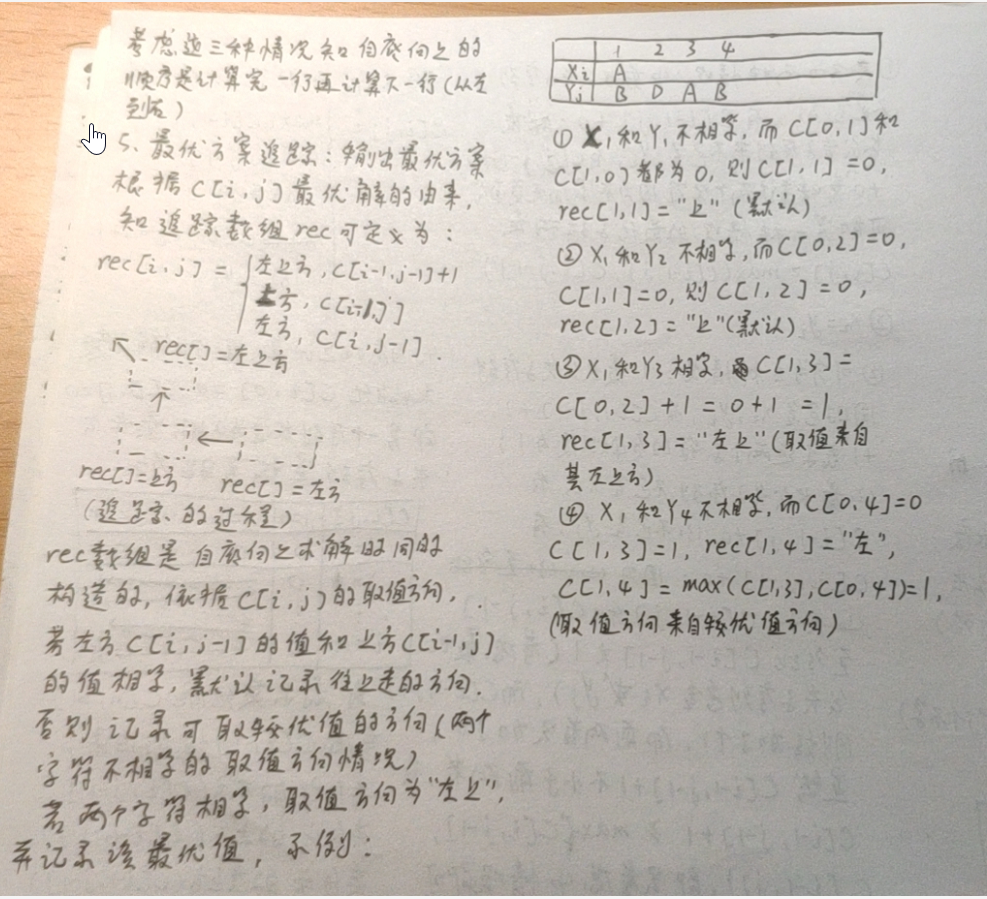 考虑这三种情况知自底向上的
顺序是计算完一行再计算下一行(从左
到右)
5、最优方案追踪:输出最优方案
根据C[i,j]最优解的由来,
知追踪数组rec可定义为:
rec[i,j] = { 左上方, C[i-1,j-1]+1
上方, C[i-1,j]
左方, C[i,j-1].
rec[]=左上方
rec[]=上方 rec[]=左方
(追踪的过程)
rec数组是自底向上求解时同时
构造的, 依据C[i,j]的取值方向,
若左方C[i,j-1]的值和上方C[i-1,j]
的值相等, 默认记录往上走的方向.
否则记录可取较优值的方向(两个
字符不相等的取值方向情况)
若两个字符相等, 取值方向为"左上",
并记录该最优值, 示例:
1 2 3 4
Xi A
Yj B D A B
① X₁和Y₁不相等, 而C[0,1]和
C[1,0]都为0, 则C[1,1]=0,
rec[1,1]="上"(默认)
② X₁和Y₂不相等, 而C[0,2]=0,
C[1,1]=0, 则C[1,2]=0,
rec[1,2]="上"(默认)
③ X₁和Y₃相等, C[1,3]=
C[0,2]+1=0+1=1,
rec[1,3]="左上"(取值来自
其左上方)
④ X₁和Y₄不相等, 而C[0,4]=0
C[1,3]=1, rec[1,4]="左",
C[1,4]=max(C[1,3],C[0,4])=1,
(取值方向来自较优值方向)